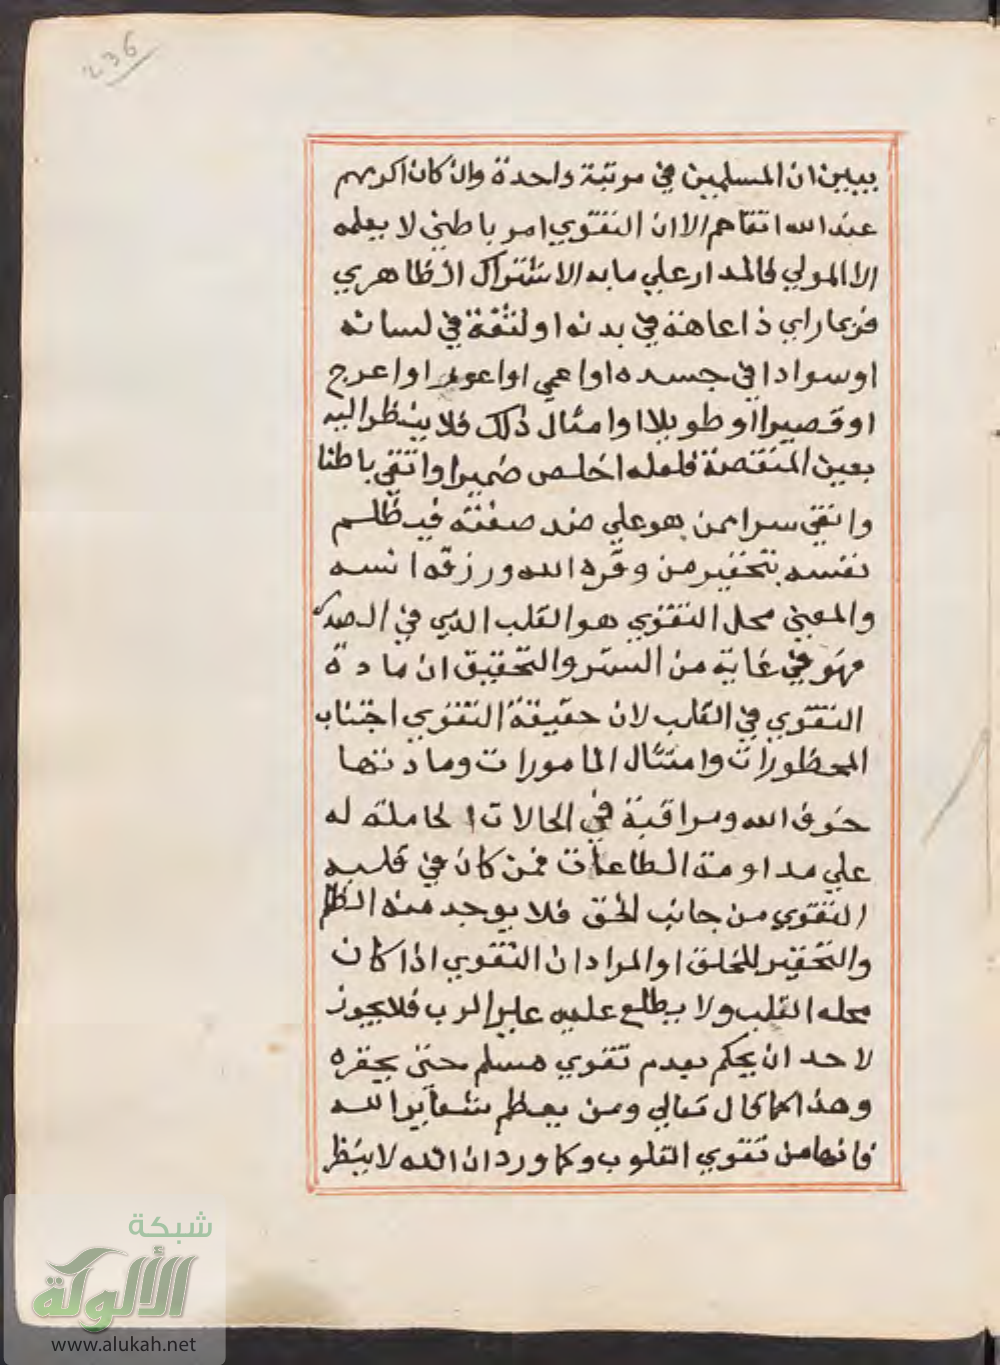 236
يبين ان المسلمين في مرتبة واحدة وان كان اكرمهم
عند الله اتقاهم الا ان التقوي امر باطني لا يعلمه
الا المولي فالمدار علي ما به الاشتراك الظاهري
فربما راي ذا عاهة في بدنه او لثغة في لسانه
او سوادا في جسده او اعمي او اعور او اعرج
او قصيرا او طويلا او امثال ذلك فلا ينظر اليه
بعين المنقصة فلعله اخلص ضميرا واتقي باطنا
وانقي سرا ممن هو علي ضد صفته فيظلم
نفسه بتحقير من وقره الله ورزقه انسه
والمعني محل التقوي هو القلب الذي في الصدر
فهو في غاية من الستر والتحقيق ان مادة
التقوي في القلب لان حقيقة التقوي اجتناب
المحظورات وامتثال المامورات ومادتها
خوف الله ومراقبة في الحالات الحاملة له
علي مداومة الطاعات فمن كان في قلبه
التقوي من جانب الحق فلا يوجد منه الظلم
والتحقير للخلق او المراد ان التقوي اذا كان
محله القلب ولا يطلع عليه غير الرب فلا يجوز
لاحد ان يحكم بعدم تقوي مسلم حتي يحقره
وهذا كما قال تعالي ومن يعظم شعآير الله
فانها من تقوي القلوب وكما ورد ان الله لا ينظر
شبكة
الألوكة
www.alukah.net